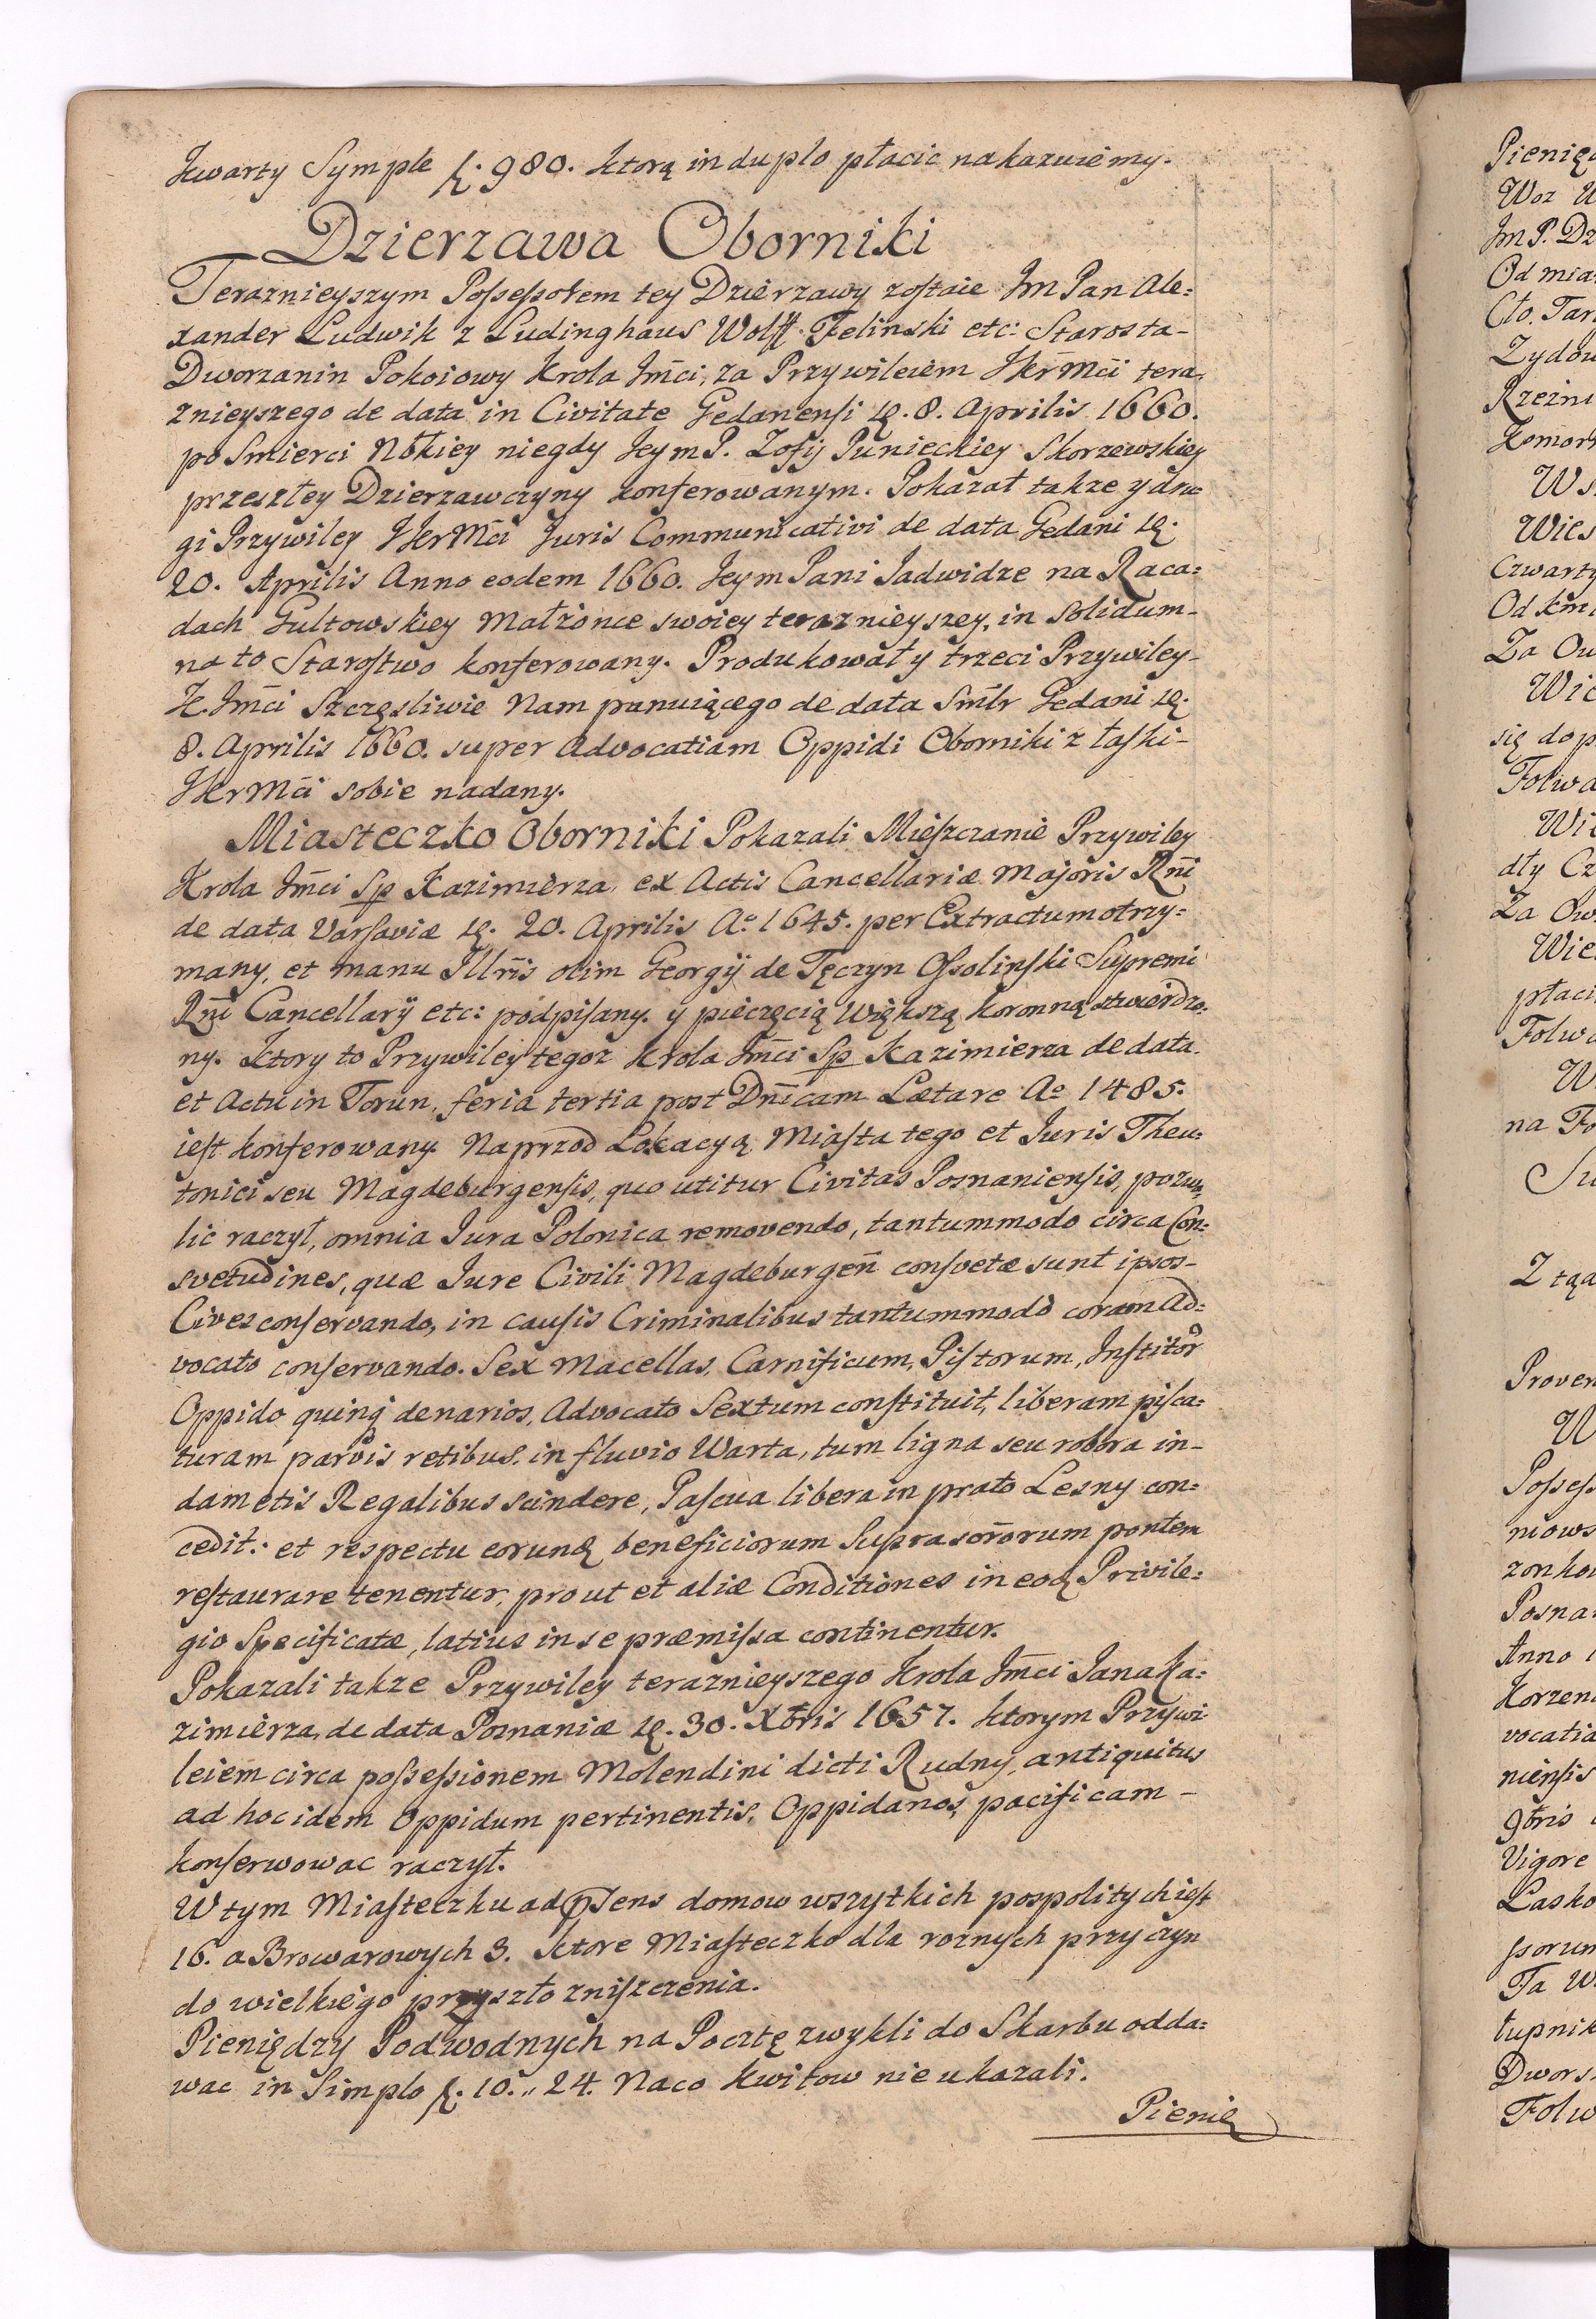 Kwarty Symple f. 980. ktorą in duplo płacic nakazuiemy.
Dzierzawa Oborniki
Teraznieyszym Possessorem tey Dzierzawy zostaie Jm Pan Ale:
xander Ludwik z Ludinghaus Wolff Felinski etc: Starosta-
Dworzanin Pokoiowy Krola Jmći, za Przywileiem JKrMći tera.
znieyszego de data in Civitate Gedanensi 8. Aprilis 1660.
po Smierci niegdy Jeym P. Zofij Punieckiey Skorzewskiey
przeszłey Dzierzawczyny konferowanym. Pokazał takze y dru
gi Przywiley JKrMći Juris Communicativi de data Gedani
20. Aprilis Anno eodem 1660. Jeym Pani Jadwidze na Raca=
dach Gultowskiey Małzonce swoiey teraznieyszey, in Solidum-
na to Starostwo konferowany. Produkował y trzeci Przywiley-
K. Jmći Szczęsliwie Nam panuiącego de data Smlr Gedani
8. Aprilis 1660. super Advocatiam Oppidi Oborniki z łaski-
JKrMći sobie nadany.
Miasteczko Oborniki Pokazali Mieszczanie Przywiley
Krola Jmći Sp Kazimierza, ex Actis Cancellariæ Majoris Rñi
de data Varsaviæ 20. Aprilis Ao 1645. per Extractum otrzy=
many, et manu Illris olim Georgij de Tęczyn Ossolinski Supremi
Rñi Cancellarij etc: podpisany. y pieczęcią Większą koronną stwierdzo.
ny. Ktory to Przywiley tegoz Krola Jmći Sp Kazimierza de data.
et Actu in Torun, feria tertia post Dnicam Lætare Ao 1485.
iest konferowany. Naprzod Lokacyą Miasta tego et Juris Theu:
tonici seu Magdeburgensis, quo utitur Civitas Posnaniensis, pozwo
lic raczył, omnia Jura Polonica removendo, tantummodo circa Con:
svetudines, quæ Jure Civili Magdeburgen̄ consvetæ sunt ipsos-
Cives conservando, in causis Criminalibus tantummodo coram Ad:
vocato conservando. Sex Macellas, Carnificum, Pistorum, Institor
Oppido quinq denarios, Advocato Sextum constituit, liberam pisca:
turam parvis retibus, in fluvio Warta, tum ligna seu robora in-
dametis Regalibus scindere, Pascua libera in prato Lesny con:
cedit: et respectu eorund beneficiorum Supra sororum pontem
restaurare tenentur, prout et aliæ Conditiones in eod Privile:
gio Specificatæ, latius in se præmissa continentur.
Pokazali takze Przywiley teraznieyszego Krola Jmći Jana Ka:
zimierza, de data Posnaniæ 30. Xbris 1657. ktorym Przywi
leiem circa possessionem Molendini dicti Rudny, antiquitus
ad hoc idem Oppidum pertinentis, Oppidanos, pacificam-
konserwowac raczył.
W tym Miasteczku ad p̄sens domow wszytkich pospolitych iest
16. a Browarowych 3. Ktore Miasteczko dla roznych przyczyn
do wielkiego przyszło zniszczenia.
Pieniędzy Podwodnych na Pocztę zwykli do Skarbu odda:
wac in Simplo f. 10.,, 24. Naco kwitow nie ukazali.
Pienię
Pienięd
Woz
Jm P. Dz
Od mia
Cło. Tar
Zydow
Rzezni
Komor
Ws
Wies
Czwarty
Od kmi
Za Ow
Wie
się dop
Folwa
Wi
dły Cz
Za Ow
Wie
płaci
Folwa
W
na Fo
Su
Z tąd
Proven
W
Possess
niows
zonko
Posna
Anno 1
Korzen
vocatia
niensis
9bris
Vigore
Lasko
ssorum
Ta W
łupnik
Dwors
Folw